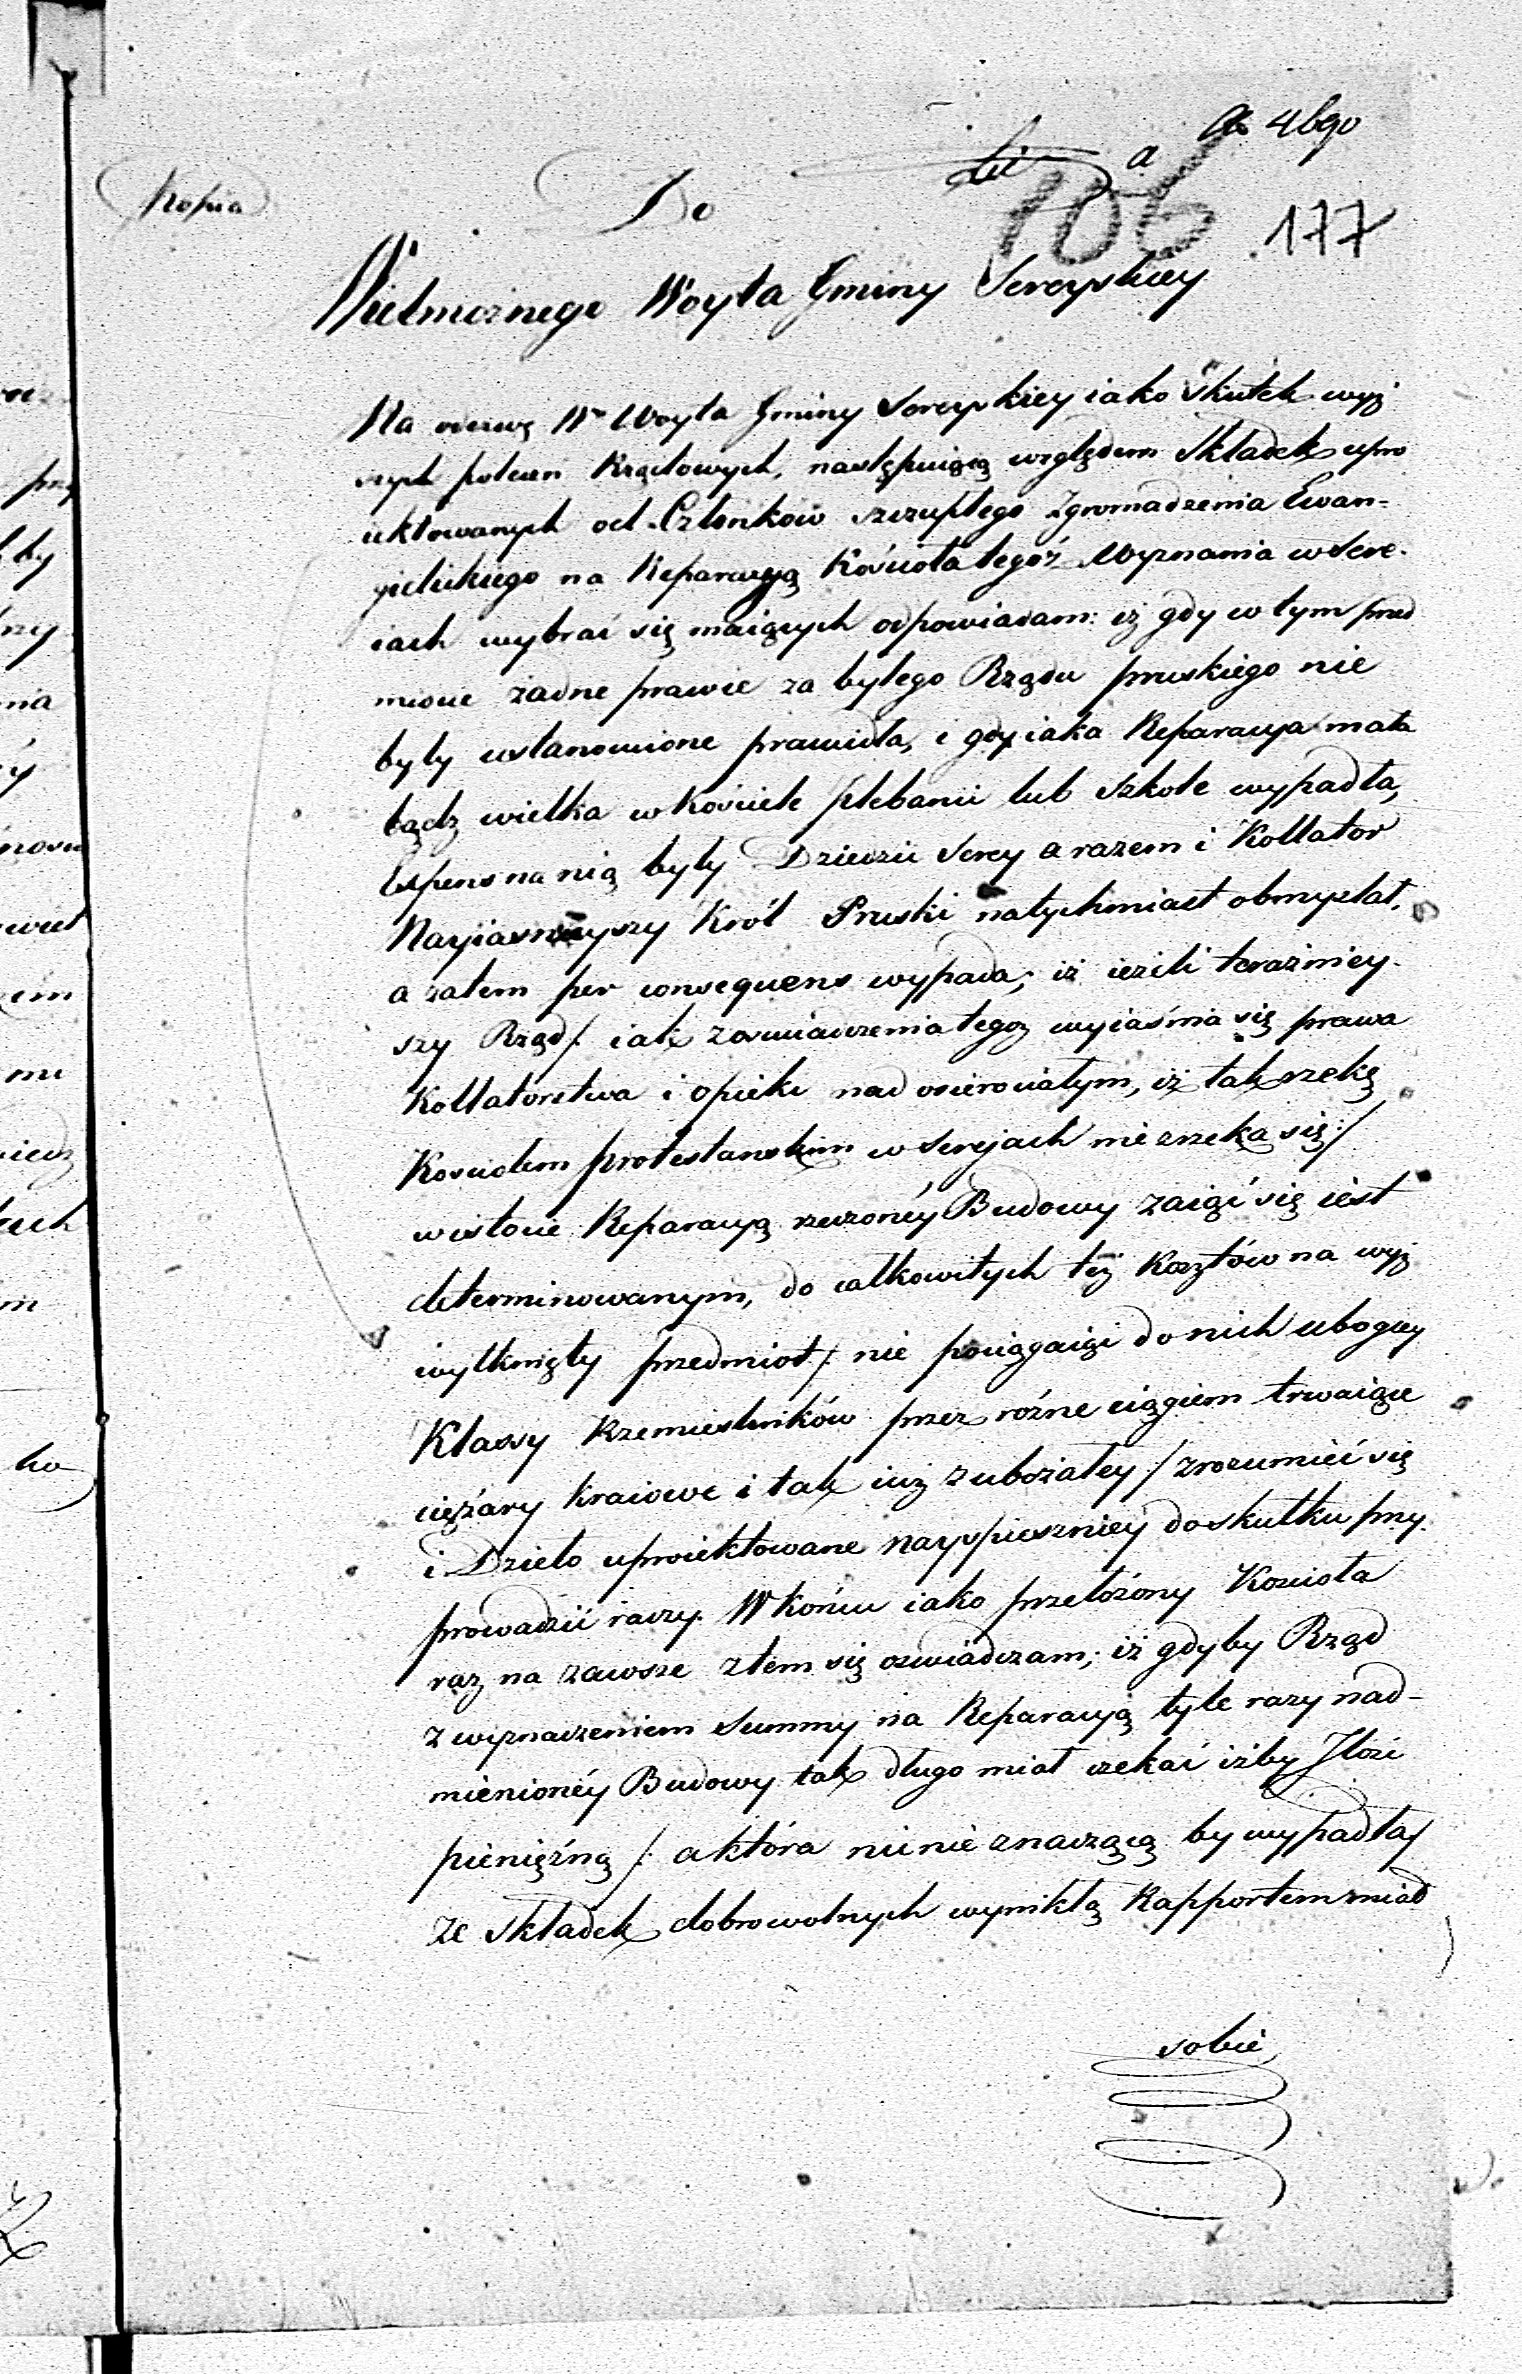 ad 4bgo
Lit a
106
177
Kopia
Do
Wielmożnego Woyta Gminy Sereyskiey
Na wezwę W° Woyta Gminy Sereyskiey iako skutek wyż
szych poleceń Rządowych, następuiącą względem Składek upro
iektowanych od Członkow szczupłego Zgromadzenia Ewan-
gielickiego na Reparacyą Kościoła tegoż Wyznania w Sere-
iach wybrać się maiących odpowiadam: iż gdy w tym przed
miocie żadne prawie za byłego Rządu pruskiego nie
były ustanowione prawidła, i gdy iaka Reparacya mała
bądz wielka w kościele plebanii lub szkole wypadła,
Expens na nią były Dziedzic Serey a razem i Kollator
Nayiasnieyszy Król Pruski natychmiast obmyslał,
a zatem per consequens wypada; iż ieżeli teraźniey-
szy Rząd /: iak zaswiadczenia tegoż wyiaśnia się prawa
Kollatorstwa i opieki nad osierociałym, iż tak rzekę
Kosciołem protestanskim w Serejach nie zrzeka się :/
w istocie Reparacyą rzeczonéy Budowy zaiąć się iest
determinowanym, do całkowitych też kosztów na wyż
wytknięty przedmiot /: nie pociągaiąc do nich ubogiey
Klassy Rzemieslników przez rożne ciągiem trwaiące
ciężary kraiowe i tak iuż zubożałey :/ zrozumieć się
i Dzieło uproiektowane nayspieszniey do skutku przy-
prowadzić raczy. W końcu iako przełożony Kosciola
raz na zawsze z tem się oswiadczam; iż gdyby Rząd
z wyznaczeniem Summy na Reparacyą tyle razy nad-
mienionéy Budowy tak długo miał czekać iżby Ilość
pieniężną /: a która nic nie znaczącą by wypadła :/
ze składek dobrowolnych wynikłą Rapportem miał
sobie